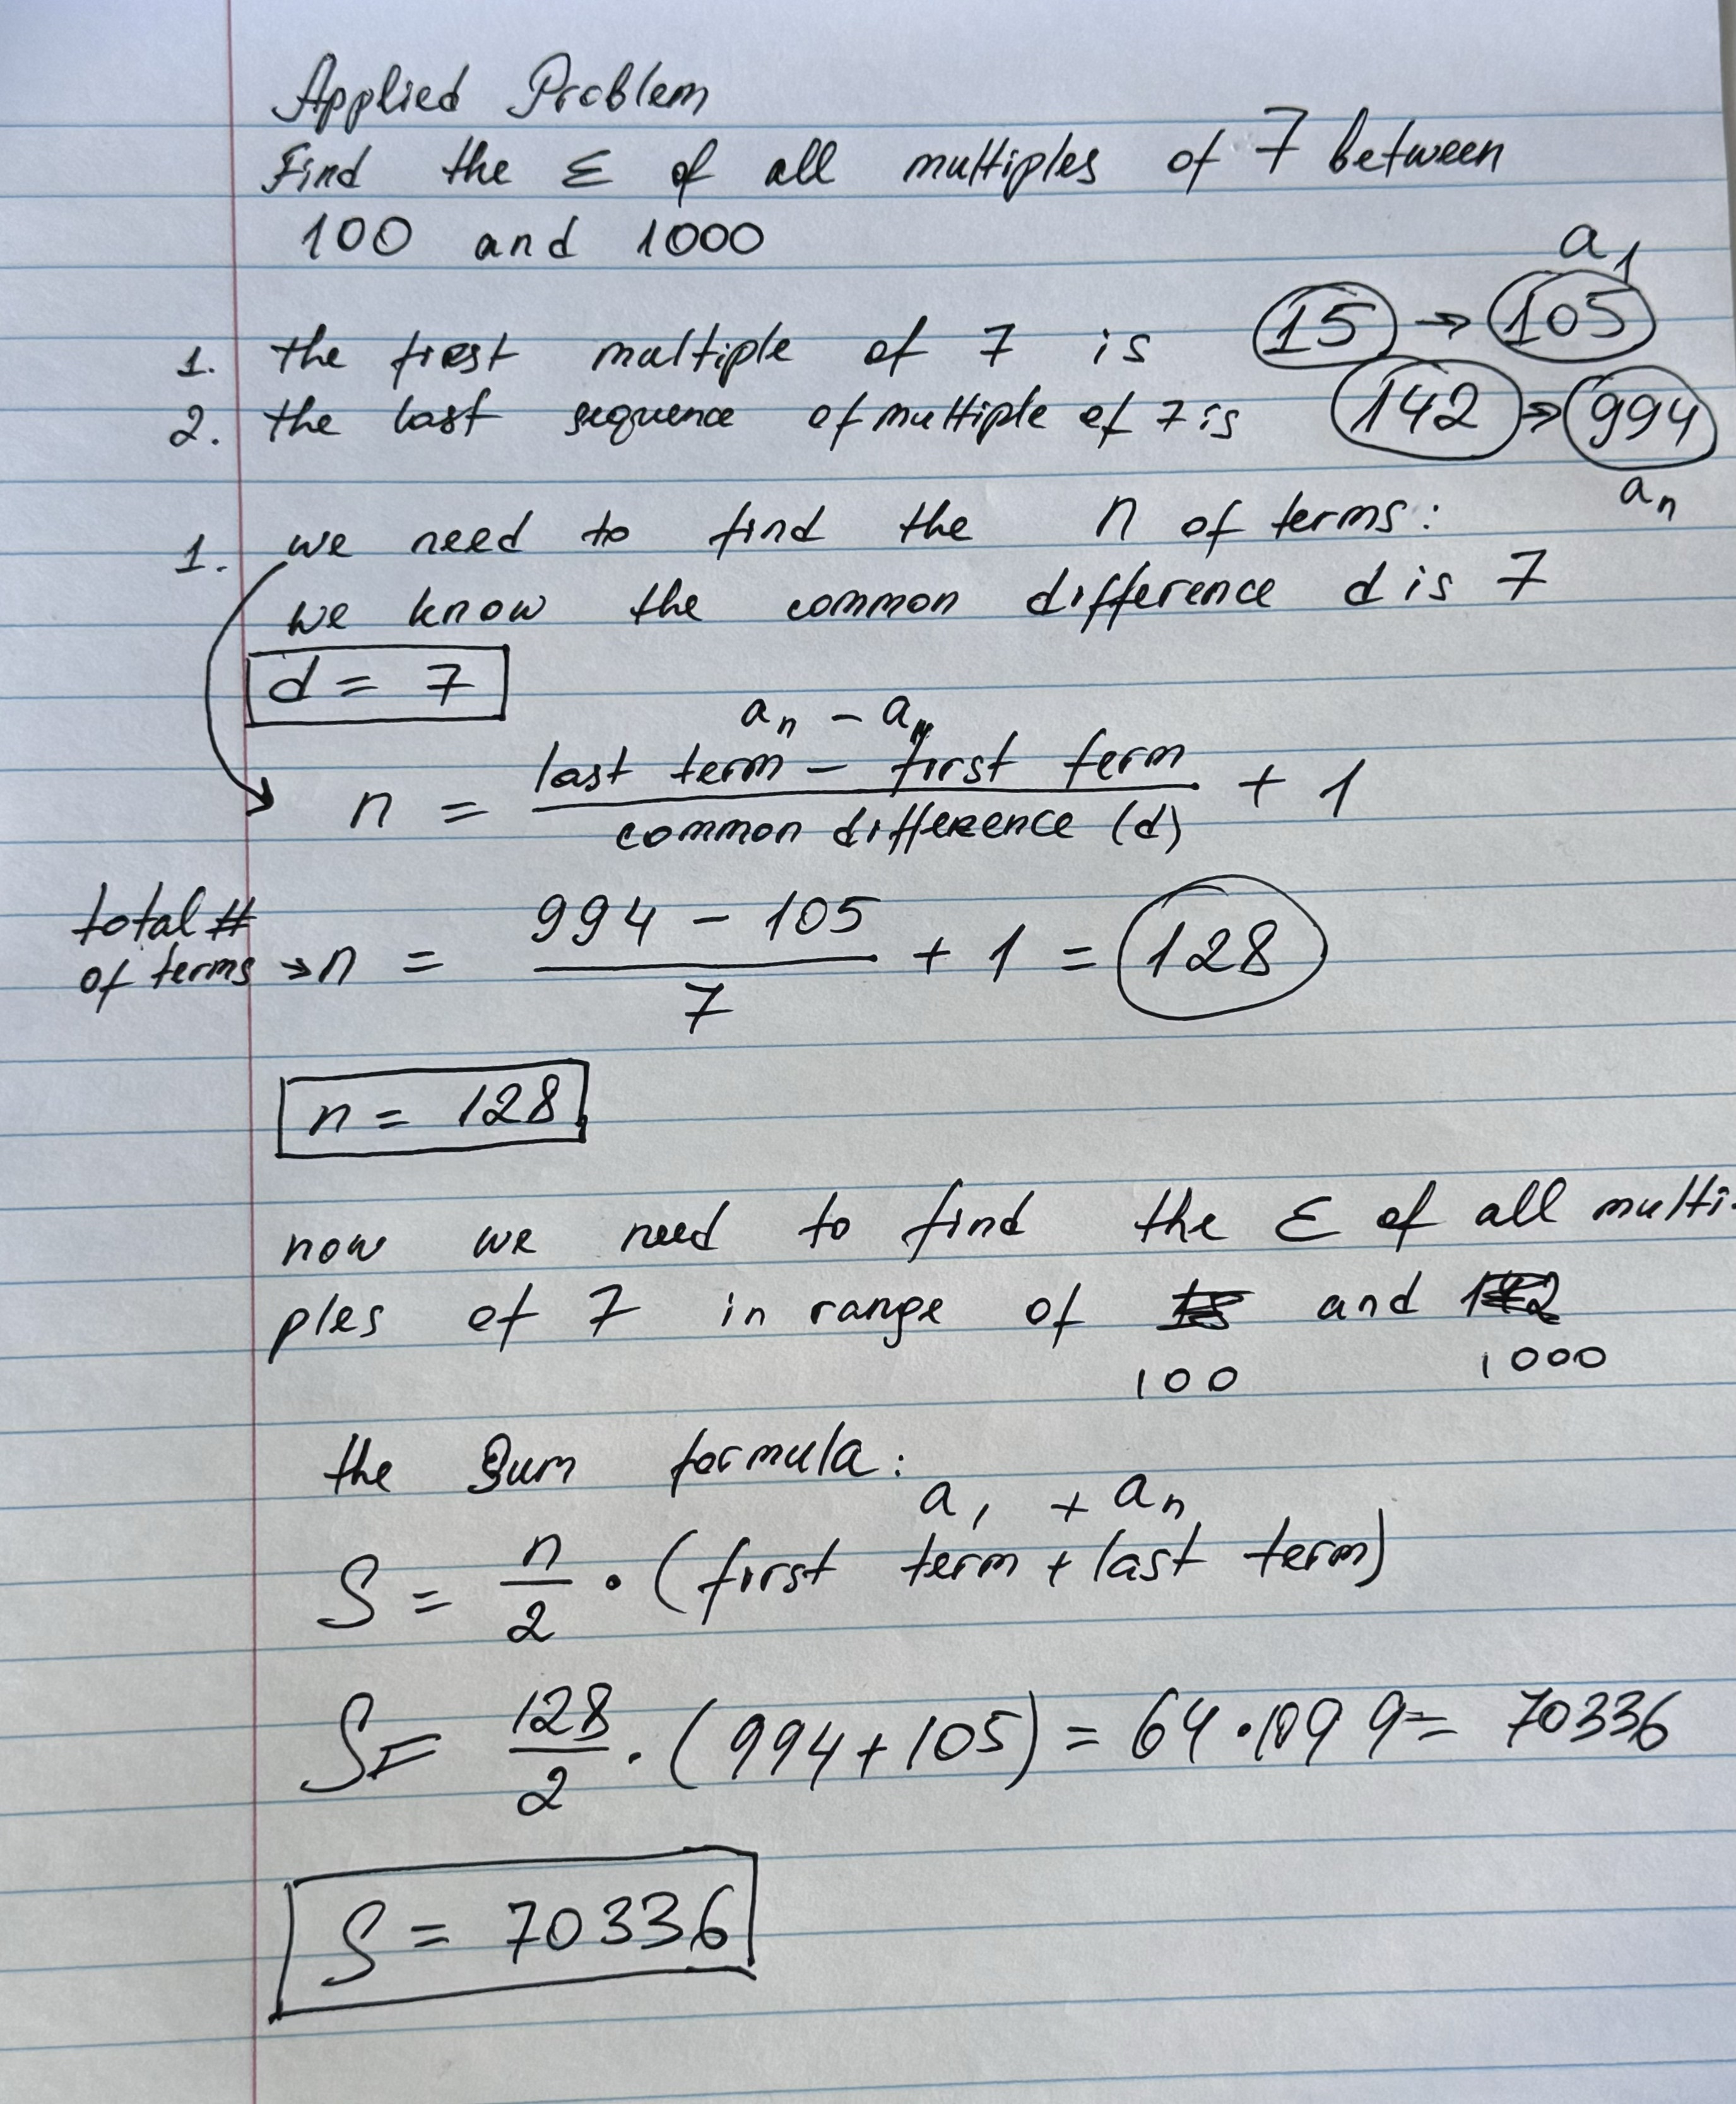 Applied Problem
Find the Σ of all multiples of 7 between
100 and 1000
a₁
1. the first multiple of 7 is 15 → 105
2. the last sequence of multiple of 7 is 142 → 994
aₙ
1. we need to find the n of terms:
we know the common difference d is 7
d = 7
aₙ - aₙ
n = (last term - first term) / (common difference (d)) + 1
total #
of terms → n = (994 - 105) / 7 + 1 = 128
n = 128
now we need to find the Σ of all multi-
ples of 7 in range of and
100 1000
the Sum formula:
a₁ + aₙ
S = n/2 · (first term + last term)
S = 128/2 · (994 + 105) = 64 · 1099 = 70336
S = 70336